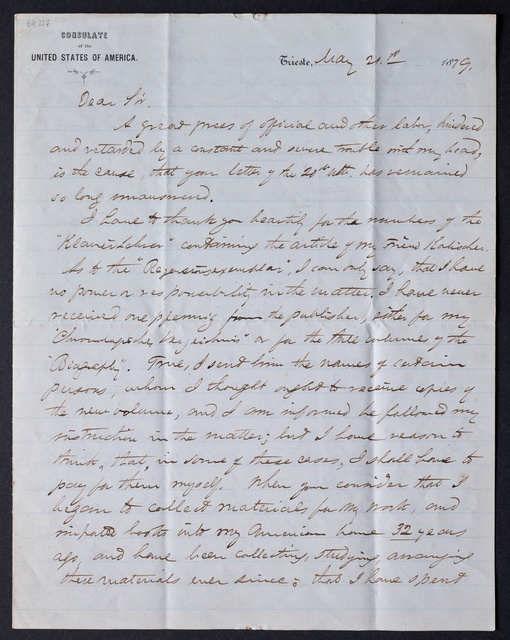 BH 227
CONSULATE
of the
UNITED STATES OF AMERICA.
Trieste, May 21st 1879.
Dear Sir.
A great press of official and other labor, hindered
and retarded by a constant and severe trouble with my head,
is the cause, that your letter of the 20th ult. has remained
so long unanswered.
I have to thank you heartily for the numbers of the
"Klavierlehrer" containing the article of my Friend Kalischer.
As to the "Regensionsexemplar", I can only say, that I have
no power or responsibility in the matter. I have never
received one pfennig from the publisher, either for my
"Chronologisches Verzeichniss" or for the three volumes of the
"Biography". True, I send him the names of certain
persons, whom I thought ought to receive copies of
the new volume, and I am informed he followed my
instruction in the matter; but I have reason to
think, that, in some of these cases, I shall have to
pay for them myself. When you consider that I
began to collect materials for my work, and
import books into my American home 32 years
ago, and have been collecting, studying, arranging
these materials ever since; that I have spent